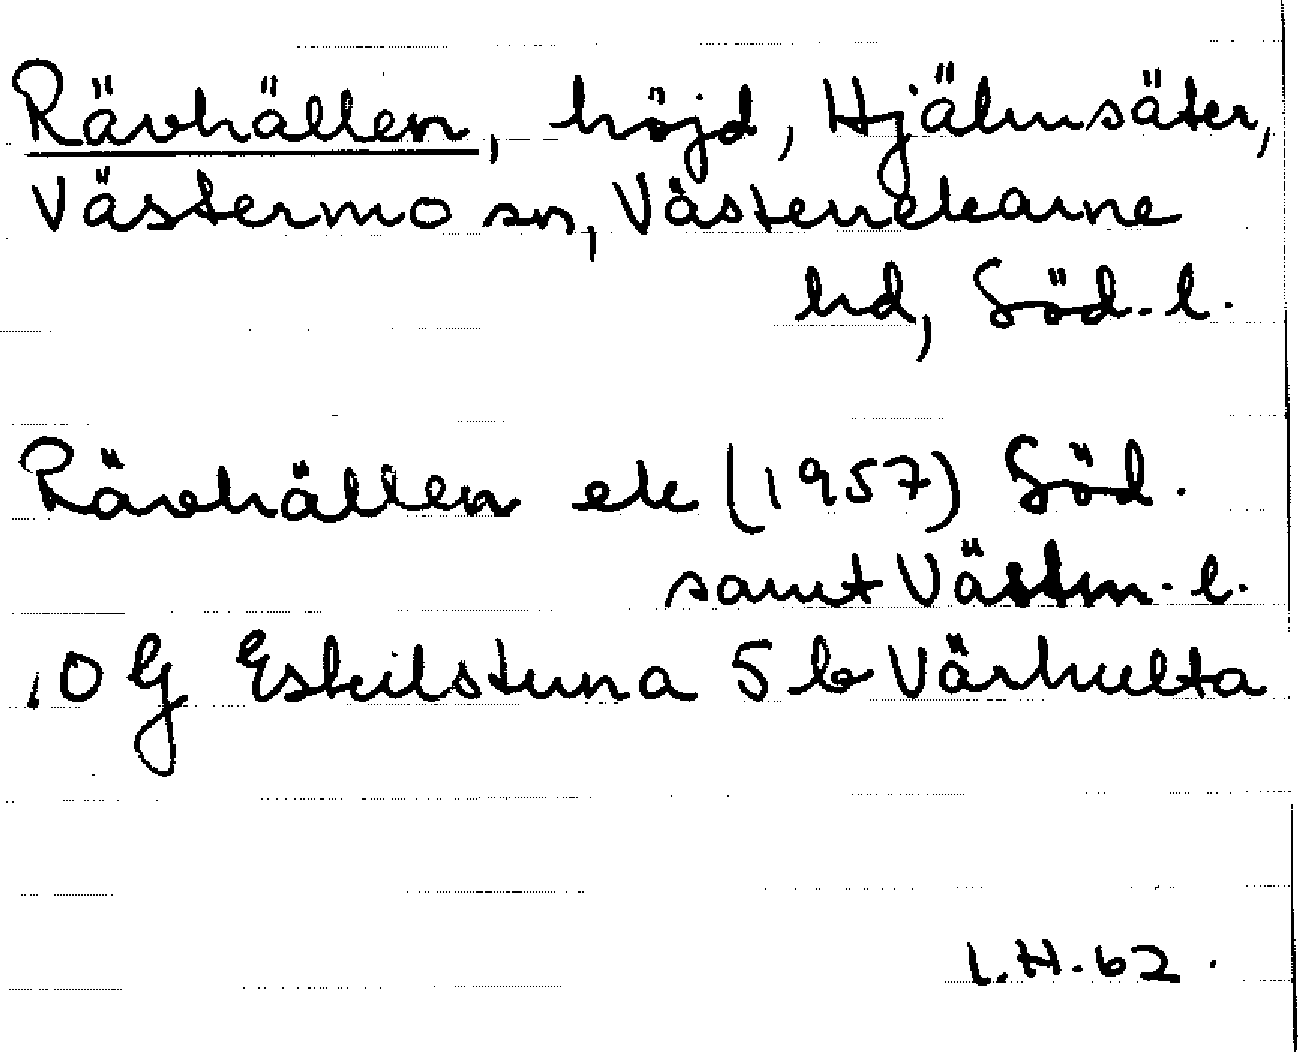 Rävhällen, höjd, Hjälmsäter,
Västermo sn, Västerrekarne
hd, Söd. l.
Rävhällen ek (1957) Söd.
samt Västm. l.
10 G Eskilstuna 5 b Värhulta
L.H. 62.